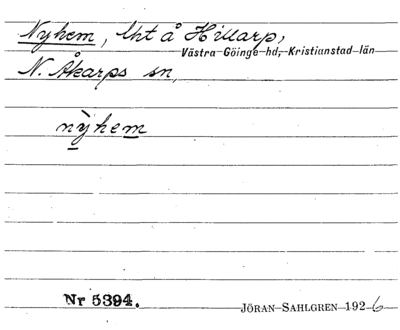 Nyhem, lht å Hillarp,
Västra Göinge hd, Kristianstad län
N. Åkarps sn,
nỳhem
Nr 5394.
JÖRAN SAHLGREN 1926